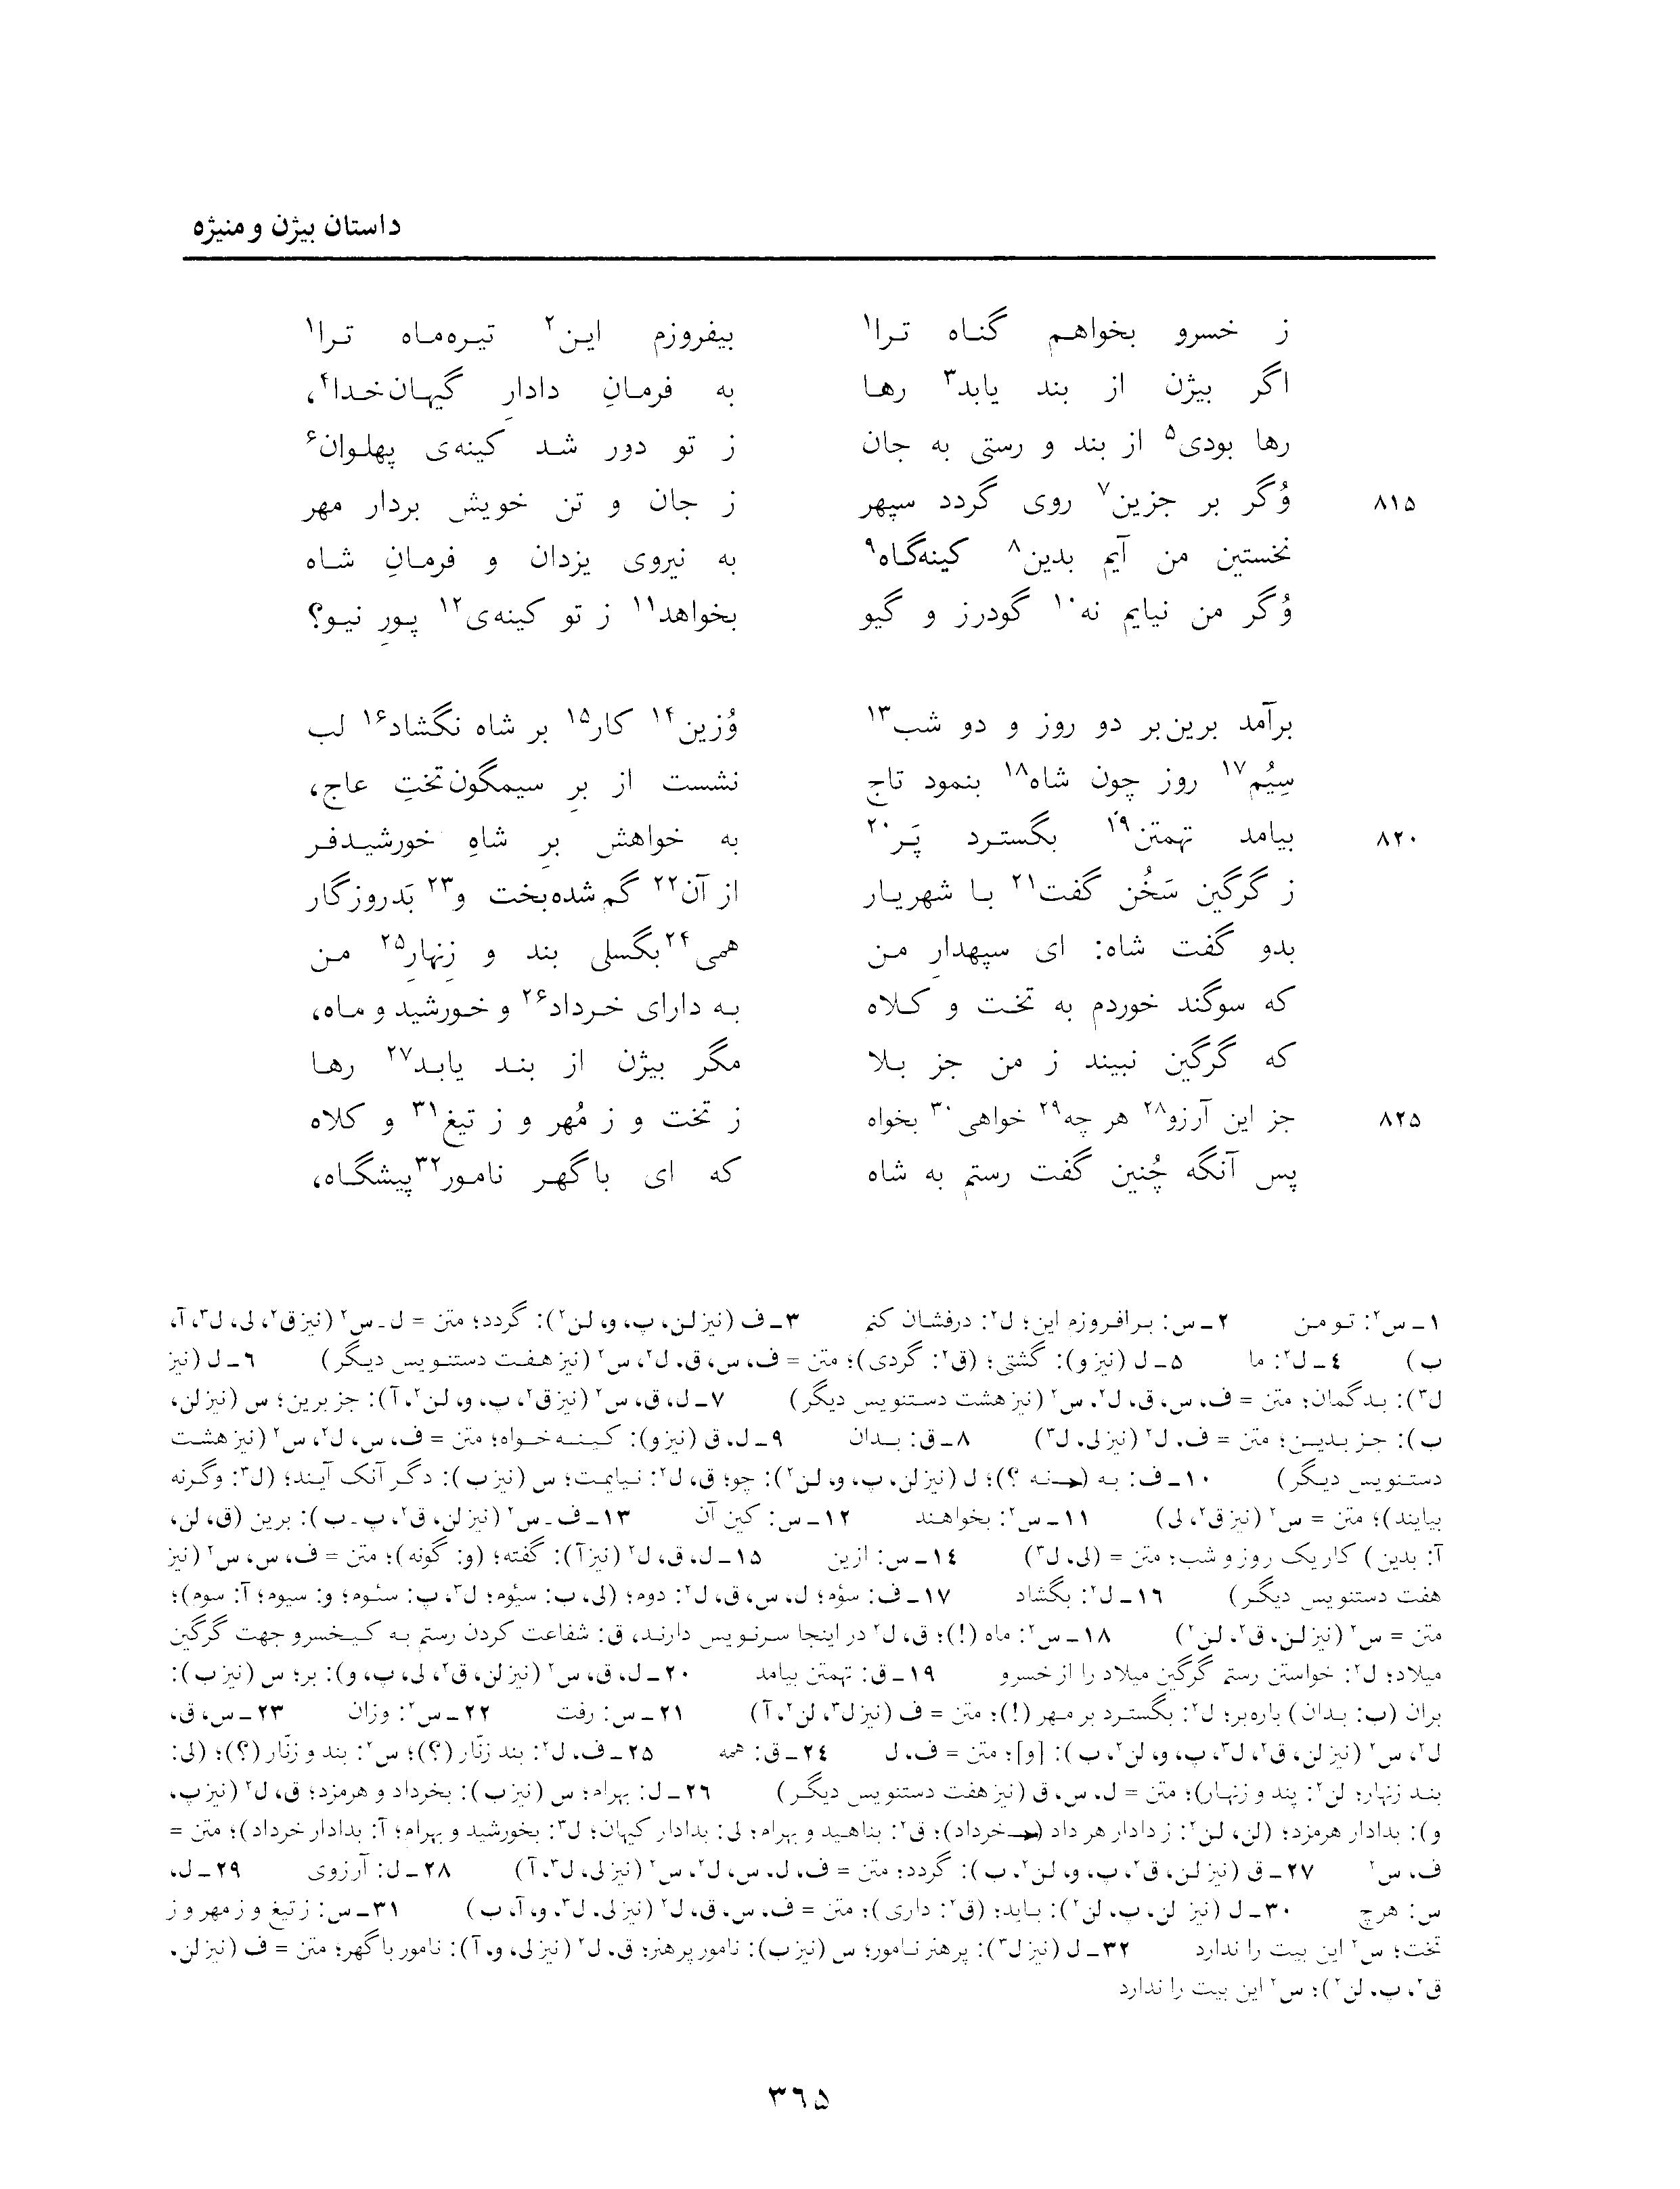 داستان بیژن و منیژه
ز خسرو بخواهم گناه ترا۱ بیفروزم این۲ تیره‌ماه ترا۱
اگر بیژن از بند یابد۳ رها به فرمانِ دادارِ گیهان‌خدا۴،
رها بودی۵ از بند و رستی به جان ز تو دور شد کینه‌ی پهلوان۶
۸۱۵ وُگر بر جزین۷ روی گردد سپهر ز جان و تن خویش بردار مهر
نخستین من آیم بدین۸ کینه‌گاه۹ به نیروی یزدان و فرمانِ شاه
وُگر من نیایم نه۱۰ گودرز و گیو بخواهد۱۱ ز تو کینه‌ی۱۲ پورِ نیو؟
برآمد برین‌بر دو روز و دو شب۱۳ وُزین۱۴ کار۱۵ بر شاه نگشاد۱۶ لب
سِیُم۱۷ روز چون شاه۱۸ بنمود تاج نشست از برِ سیمگون‌تختِ عاج،
۸۲۰ بیامد تهمتن۱۹ بگسترد پَر۲۰ به خواهش برِ شاهِ خورشیدفر
ز گرگین سَخُن گفت۲۱ با شهریار از آن۲۲ گم‌شده‌بخت و۲۳ بَدروزگار
بدو گفت شاه: ای سپهدارِ من همی۲۴ بگسلی بند و زِنهارِ۲۵ من
که سوگند خوردم به تخت و کلاه به دارای خرداد۲۶ و خورشید و ماه،
که گرگین نبیند ز من جز بلا مگر بیژن از بند یابد۲۷ رها
۸۲۵ جز این آرزو۲۸ هر چه۲۹ خواهی۳۰ بخواه ز تخت و ز مُهر و ز تیغ۳۱ و کلاه
پس آنگه چُنین گفت رستم به شاه که ای باگهر نامور۳۲ پیشگاه،
۱ـ س۲: تو من ۲ـ س: برافروزم این؛ ل۲: درفشان کنم ۳ـ ف (نیز لن، پ، و، لن۲): گردد؛ متن = ل ـ س۲ (نیز ق۲، لی، ل۳، آ،
ب) ۴ـ ل۲: ما ۵ـ ل (نیز و): گشتی؛ (ق۲: گردی)؛ متن = ف، س، ق، ل۲، س۲ (نیز هفت دستنویس دیگر) ۶ـ ل (نیز
ل۳): بدگمان؛ متن = ف، س، ق، ل۲، س۲ (نیز هشت دستنویس دیگر) ۷ـ ل، ق، س۲ (نیز ق۲، پ، و، لن۲، آ): جز برین؛ س (نیز لن،
ب): جز بدین؛ متن = ف، ل۲ (نیز لی، ل۳) ۸ـ ق: بدان ۹ـ ل، ق (نیز و): کینه‌خواه؛ متن = ف، س، ل۲، س۲ (نیز هشت
دستنویس دیگر) ۱۰ـ ف: به (← نه ؟)؛ ل (نیز لن، پ، و، لن۲): چو؛ ق، ل۲: نیایمت؛ س (نیز ب): دگر آنک آیند؛ (ل۳: وگرنه
بیایند)؛ متن = س۲ (نیز ق۲، لی) ۱۱ـ س۲: بخواهند ۱۲ـ س: کین آن ۱۳ـ ف ـ س۲ (نیز لن، ق۲، پ ـ ب): برین (ق، لن،
آ: بدین) کار یک روز و شب؛ متن = (لی، ل۳) ۱۴ـ س: ازین ۱۵ـ ل، ق، ل۲ (نیز آ): گفته؛ (و: گونه)؛ متن = ف، س، س۲ (نیز
هفت دستنویس دیگر) ۱۶ـ ل۲: بگشاد ۱۷ـ ف: سؤم؛ ل، س، ق، ل۲: دوم؛ (لی، ب: سیؤم؛ ل۳، پ: سئوم؛ و: سیوم؛ آ: سوم)؛
متن = س۲ (نیز لن، ق۲، لن۲) ۱۸ـ س۲: ماه (!)؛ ق، ل۲ در اینجا سرنویس دارند، ق: شفاعت کردن رستم به کیخسرو جهت گرگین
میلاد؛ ل۲: خواستن رستم گرگین میلاد را از خسرو ۱۹ـ ق: تهمتن بیامد ۲۰ـ ل، ق، س۲ (نیز لن، ق۲، لی، پ، و): بر؛ س (نیز ب):
بران (ب: بدان) باره‌بر؛ ل۲: بگسترد بر مهر (!)؛ متن = ف (نیز ل۳، لن۲، آ) ۲۱ـ س: رفت ۲۲ـ س۲: وزان ۲۳ـ س، ق،
ل۲، س۲ (نیز لن، ق۲، ل۳، پ، و، لن۲، ب): [و]؛ متن = ف، ل ۲۴ـ ق: همه ۲۵ـ ف، ل۲: بند زنّار (؟)؛ س۲: بند و زنّار (؟)؛ (لی:
بند زنهار؛ لن۲: پند و زنهار)؛ متن = ل، س، ق (نیز هفت دستنویس دیگر) ۲۶ـ ل: بهرام؛ س (نیز ب): بخرداد و هرمزد؛ ق، ل۲ (نیز پ،
و): بدادار هرمزد؛ (لن، لن۲: ز دادار هر داد (← خرداد)؛ ق۲: بناهید و بهرام؛ لی: بدادار کیهان؛ ل۳: بخورشید و بهرام؛ آ: بدادار خرداد)؛ متن =
ف، س۲ ۲۷ـ ق (نیز لن، ق۲، پ، و، لن۲، ب): گردد؛ متن = ف، ل، س، ل۲، س۲ (نیز لی، ل۳، آ) ۲۸ـ ل: آرزوی ۲۹ـ ل،
س: هرچ ۳۰ـ ل (نیز لن، پ، لن۲): باید؛ (ق۲: داری)؛ متن = ف، س، ق، ل۲ (نیز لی، ل۳، و، آ، ب) ۳۱ـ س: ز تیغ و ز مهر و ز
تخت؛ س۲ این بیت را ندارد ۳۲ـ ل (نیز ل۳): پرهنر نامور؛ س (نیز ب): نامور پرهنر؛ ق، ل۲ (نیز لی، و، آ): نامور باگهر؛ متن = ف (نیز لن،
ق۲، پ، لن۲)؛ س۲ این بیت را ندارد
۳۶۵